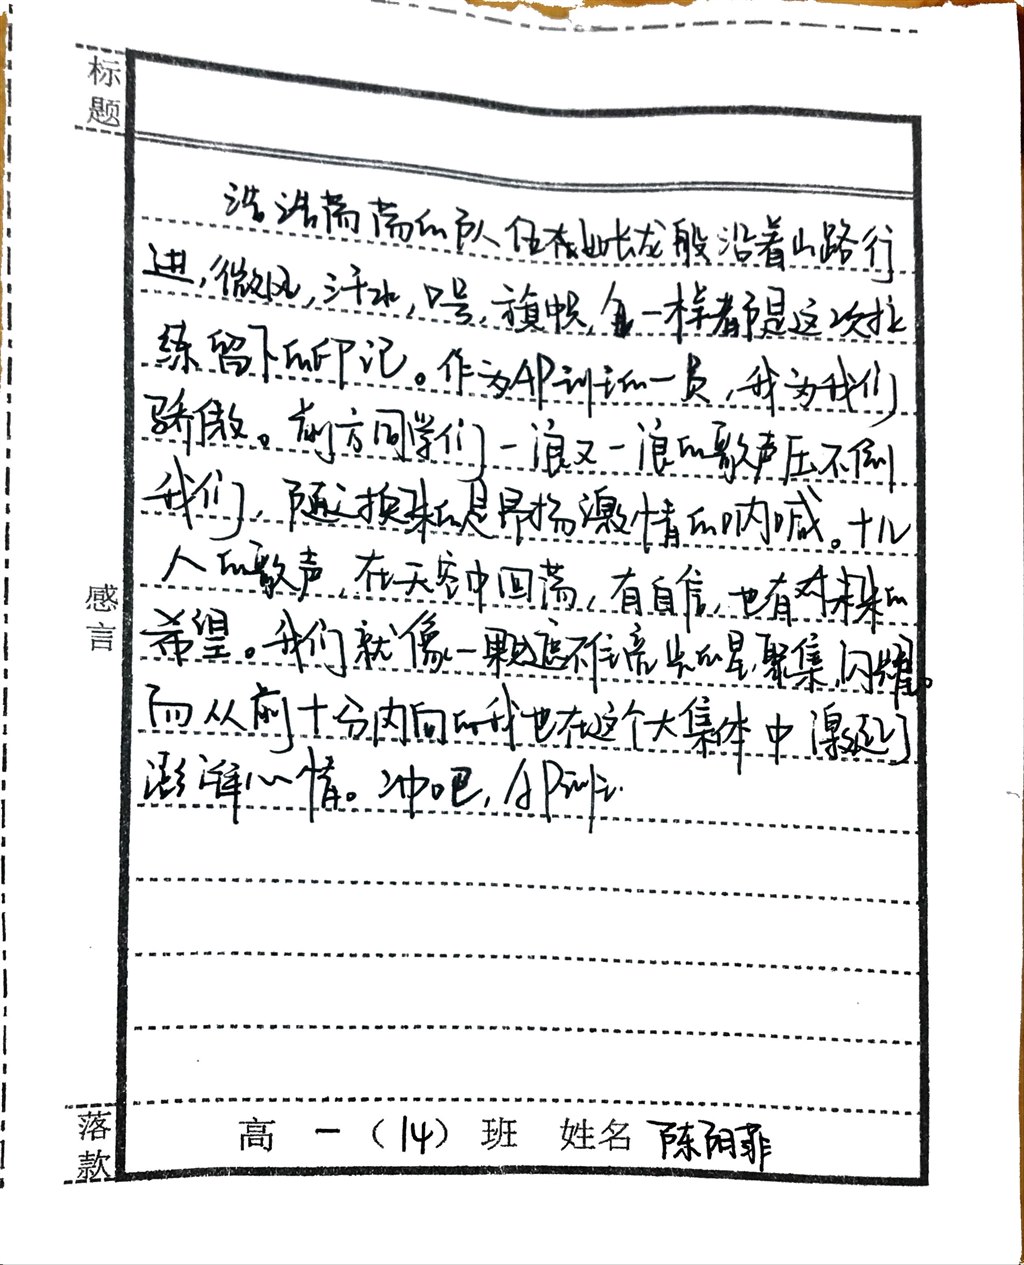 标题
浩浩荡荡的队伍在如长龙般沿着山路行
进，微风，汗水，口号，旗帜，每一样都是这次拉
练留下的印记。作为AP训练的一员，我为我们
骄傲。前方同学们一浪又一浪的歌声压不倒
我们，随之换来的是昂扬激情的呐喊。十几
人的歌声，在天空中回荡，有自信，也有对未来的
希望。我们就像一颗遮不住亮光的星，聚集，闪耀。
而从前十分内向的我也在这个大集体中激起了
澎湃心情。冲吧，AP训
感言
落款
高 一 （14） 班 姓名 陈阳菲